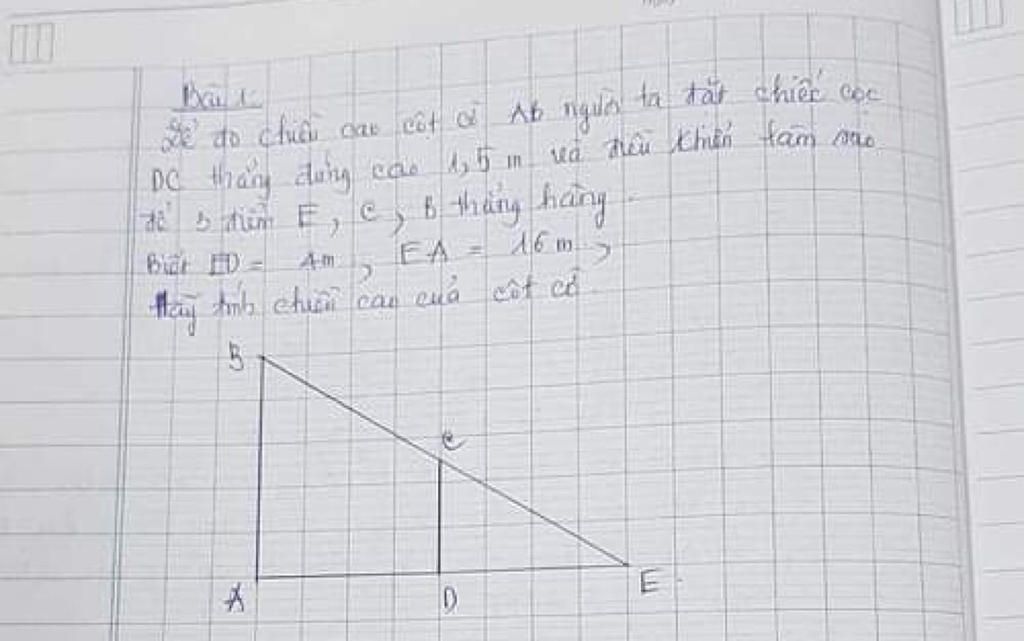 Bài 1:
Để đo chiều cao cột cờ AB người ta đặt chiếc cọc
DC thẳng đứng cao 1,5 m và điều khiển tấm sào
để 3 điểm E, C, B thẳng hàng.
Biết ED = 4m, EA = 16 m,
Hãy tính chiều cao của cột cờ.
B
C
A
D
E